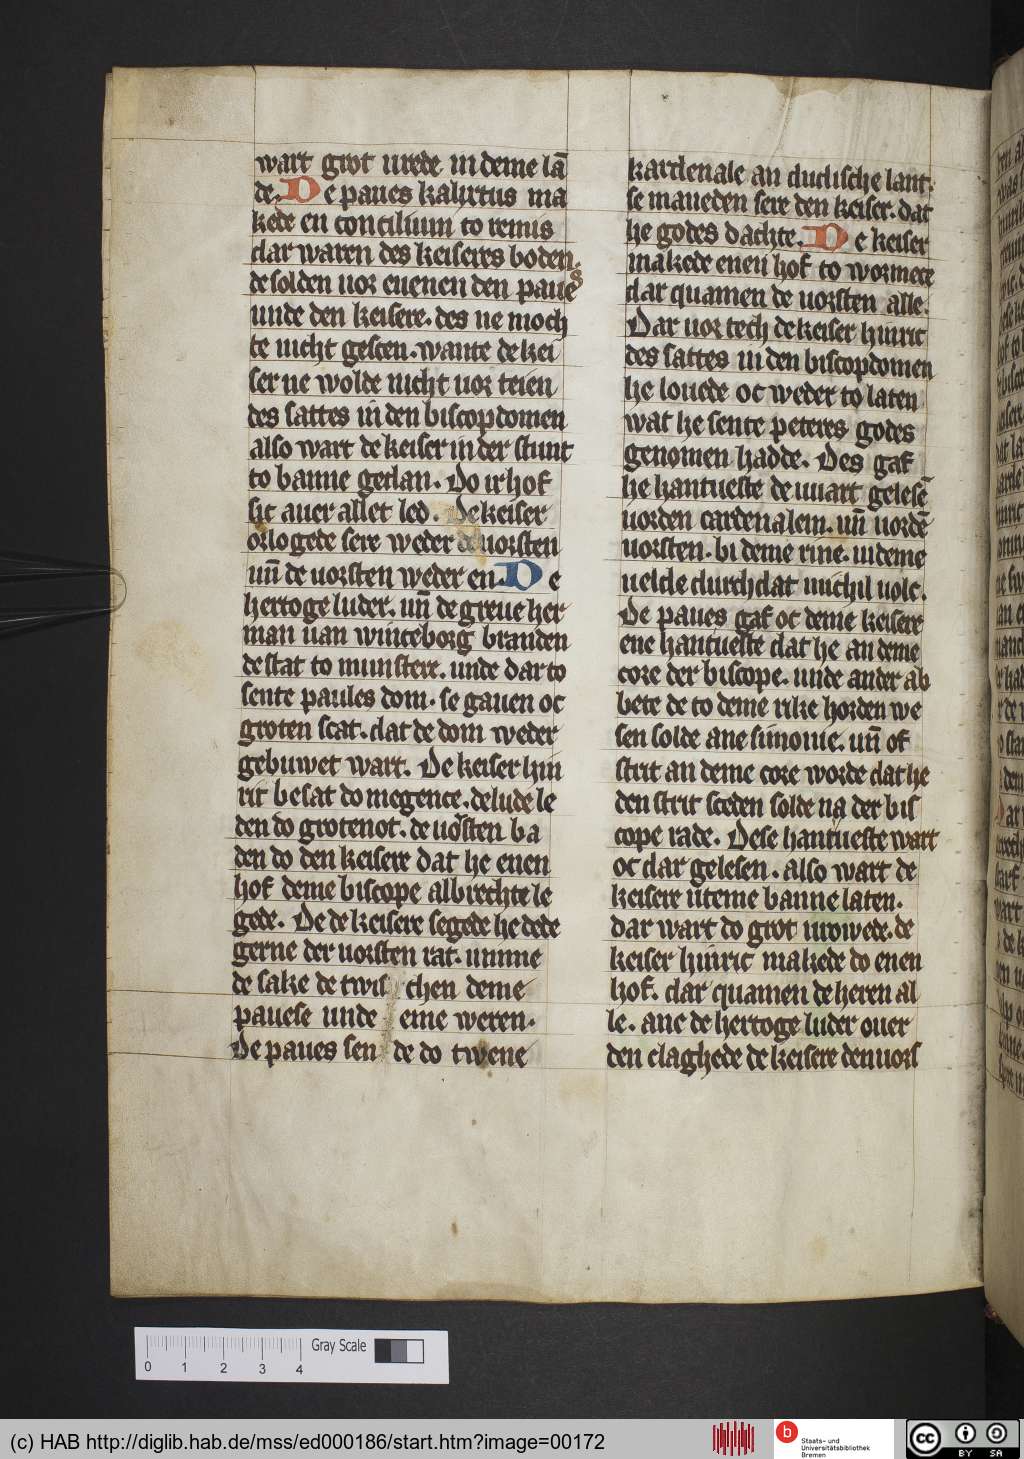 wart grot urede in deme lā
de. De paues kalixtus ma
kede en concilium to remis
dar waren des keiseres boden.
de solden uor euenen den paues
unde den keisere. des ne moch
te nicht gescen. wante de kei
ser ne wolde nicht uor teien
des sattes in den biscopdomen
also wart de keiser in der stunt
to banne gedan. Do irhof
sic auer allet led. De keiser
orlogede sere weder de uorsten
uñ de uorsten weder en. De
hertoge luder. uñ de greue her
man uan winceborg branden
de stat to munstere. unde dar to
sente paules dom. se gauen oc
groten scat. dat de dom weder
gebuwet wart. De keiser hin
ric besat do megence. de lude le
den do grote not. de uorsten ba
den do den keisere dat he enen
hof deme biscope albrechte le
gede. De de keisere segede he dede
gerne der uorsten rat. umme
de sake de twischen deme
pauese unde eme weren.
De paues sende do twene
kardenale an dudische lant.
se maneden sere den keiser. dat
he godes dachte. De keiser
makede enen hof to wormece
dar quamen de uorsten alle.
Dar uor tech de keiser hinric
des sattes in den biscopdomen
he louede oc weder to laten
wat he sente peteres godes
genomen hadde. Des gaf
he hantueste de wart gelesē
uorden cardenalem. uñ uordē
uorsten. bi deme rine. in deme
uelde durch dat michil uolc.
De paues gaf oc deme keisere
ene hantueste dat he an deme
core der biscope. unde ander ab
bete de to deme rike horden we
sen solde ane simonie. uñ of
strit an deme core worde dat he
den strit sceden solde na der bis
cope rade. Dese hantueste wart
oc dar gelesen. also wart de
keisere uteme banne laten.
dar wart do grot urowede. de
keiser hinric makede do enen
hof. dar quamen de heren al
le. ane de hertoge luder ouer
den claghede de keisere den uors
0 1 2 3 4 Gray Scale
(c) HAB http://diglib.hab.de/mss/ed000186/start.htm?image=00172
b Staats- und
Universitätsbibliothek
Bremen
cc BY SA